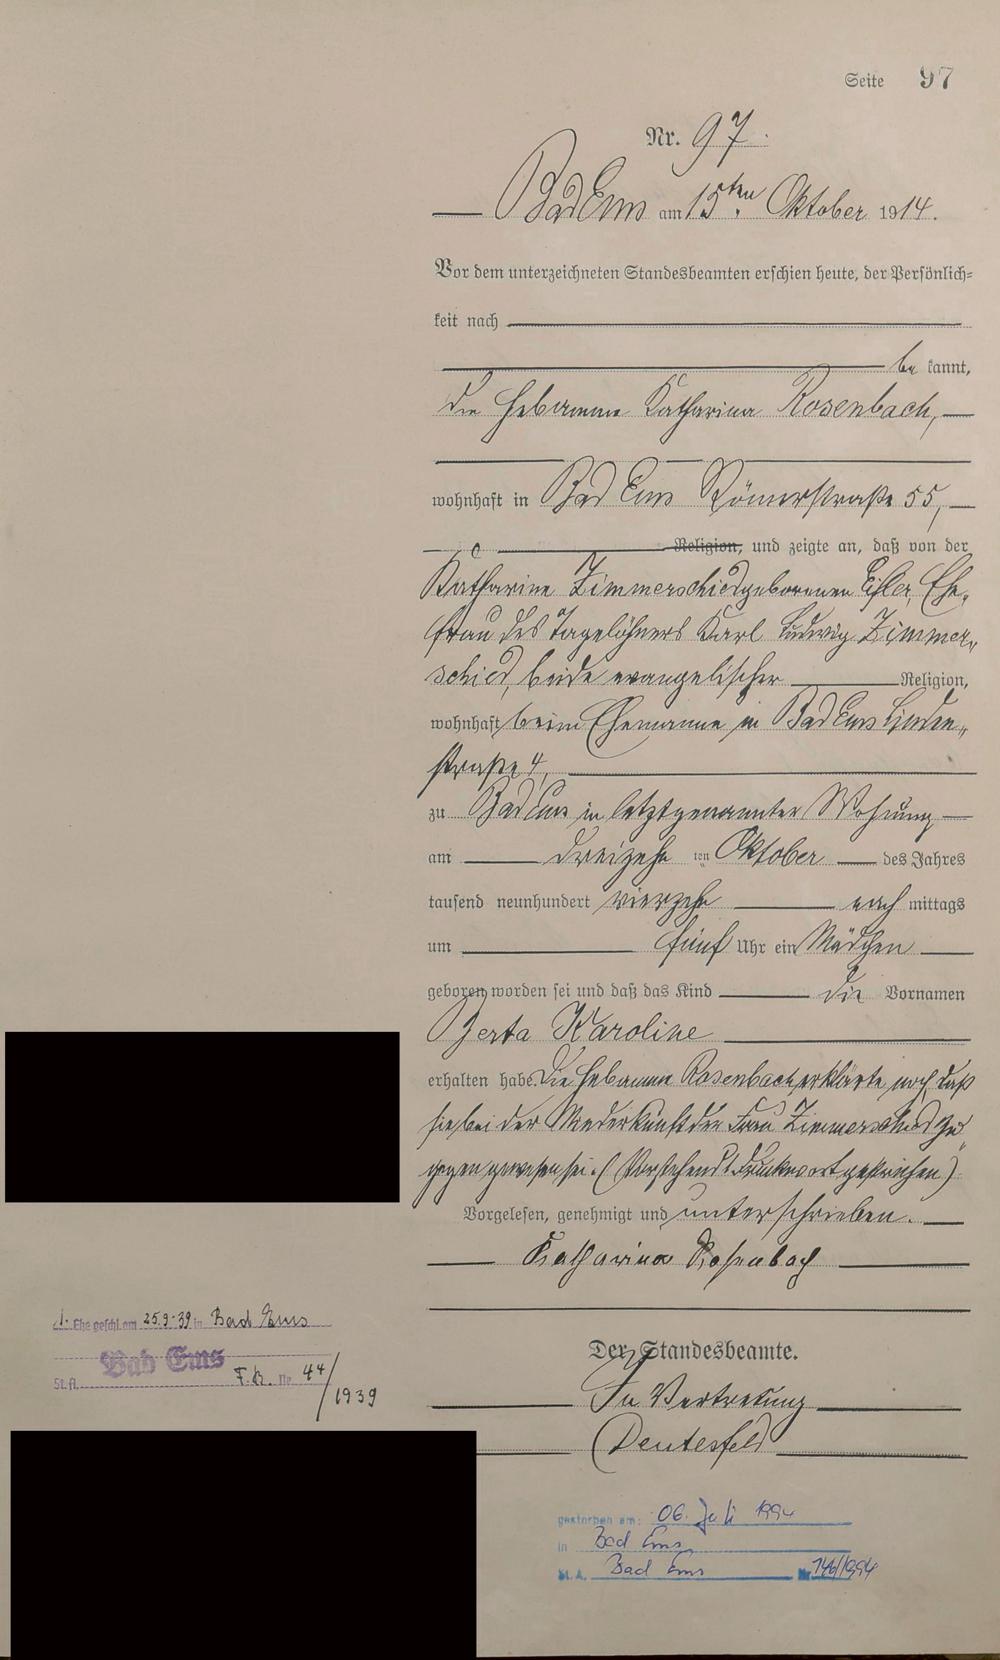 Seite 97
Nr. 97.
Bad Ems am 15ten Oktober 1914.
Vor dem unterzeichneten Standesbeamten erschien heute, der Persönlich=
keit nach
be kannt,
die Hebamme Katharina Rosenbach,
wohnhaft in Bad Ems Römerstraße 55,
Religion, und zeigte an, daß von der
Katharine Zimmerschied geborenen Eisler, Ehe-
frau des Tagelöhners Karl Ludwig Zimmer-
schied, beide evangelischer Religion,
wohnhaft beim Ehemanne in Bad Ems Linden-
straße 4,
zu Bad Ems in letztgenannter Wohnung
am dreizehn ten Oktober des Jahres
tausend neunhundert vierzehn nach mittags
um fünf Uhr ein Mädchen
geboren worden sei und daß das Kind die Vornamen
Berta Karoline
erhalten habe. Die Hebamme Rosenbach erklärte noch, daß
sie bei der Niederkunft der Frau Zimmerschied zu-
gegen gewesen sei. (Vorstehend 1 Druckwort gestrichen)
Vorgelesen, genehmigt und unterschrieben.
Katharina Rosenbach
Der Standesbeamte.
In Vertretung
Deutesfeld
1. Ehe geschl. am 25.9.39 in Bad Ems
Bad Ems
St. A. F.B. Nr. 44/
1939
gestorben am: 06. Juli 1994
in Bad Ems
St. A. Bad Ems Nr. 146/1994